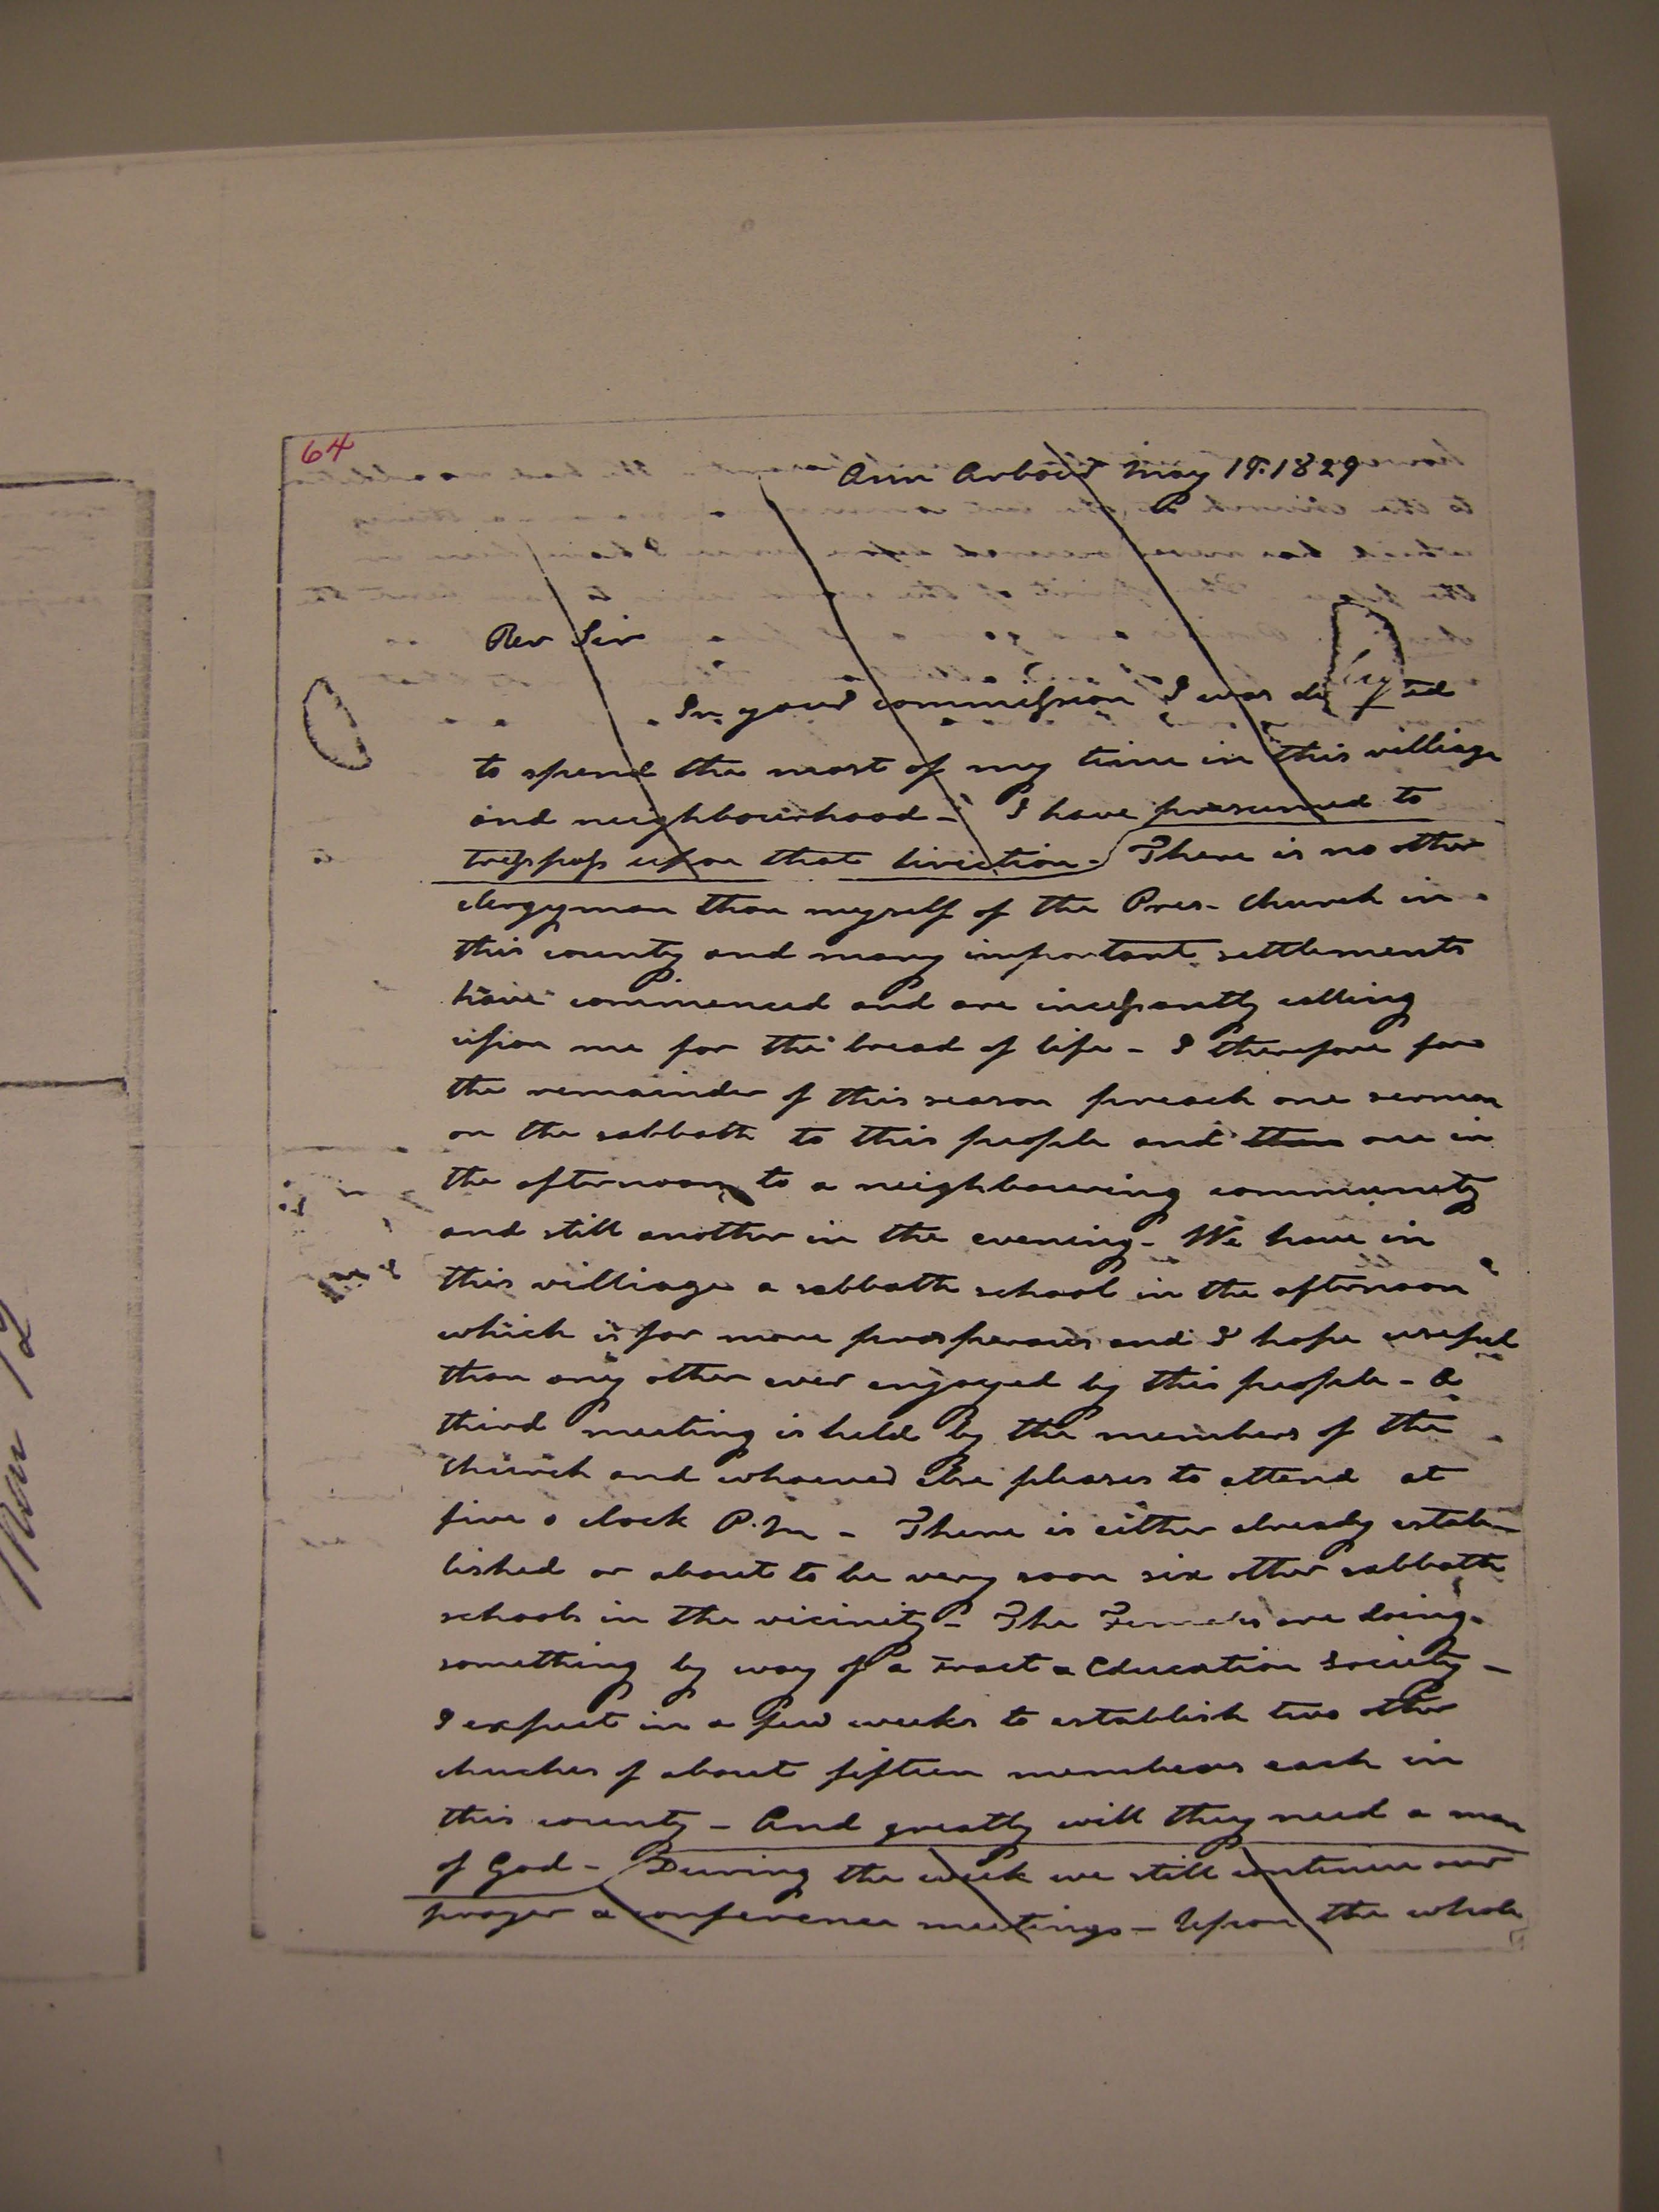 64
Ann Arbour May 19. 1829
Rev Sir
In your commission I was di ted
to spend the most of my time in this villiage
and neighbourhood - I have presumed to
tresspass upon that direction - There is no other
clergyman than myself of the Pres- church in
this county and many important settlements
have commenced and are incessantly calling
upon me for the bread of life - I therefore for
the remainder of this season preach one sermon
on the sabbath to this people and then one in
the afternoon to a neighbouring community
and still another in the evening - We have in
this villiage a sabbath school in the afternoon
which is far more prosperous and I hope useful
than any other ever enjoyed by this people - A
third meeting is held by the members of the
church and whoever else pleases to attend at
five o clock P.M - There is either already estab-
lished or about to be very soon six other sabbath
schools in the vicinity - The Females are doing
something by way of a Tract & Education Society -
I expect in a few weeks to establish two other
chuches of about fifteen members each in
this county - And greatly will they need a man
of God - During the week we still continue our
prayer & conference meetings - Upon the whole